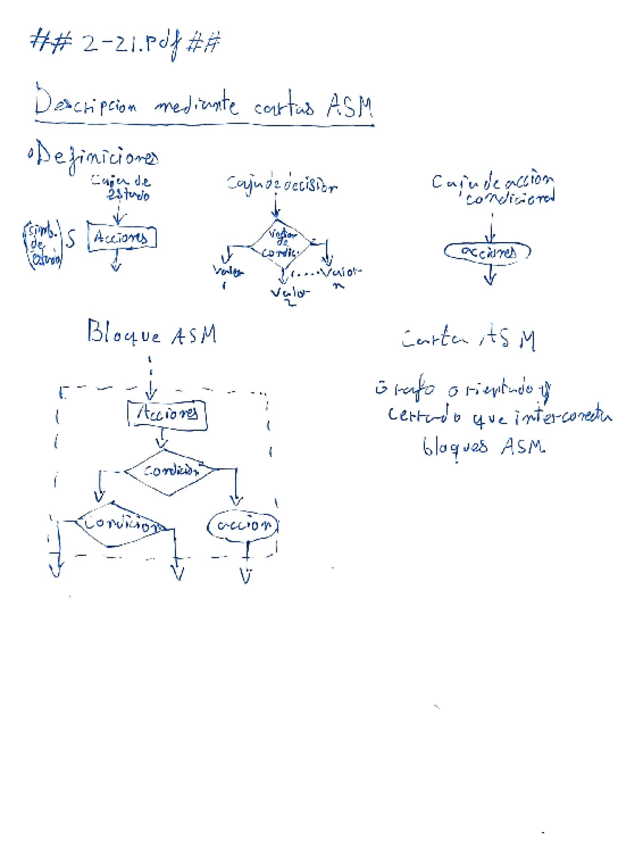 ## 2-21.pdf ##
Descripcion mediante cartas ASM
Definiciones
Caja de
estado
(simb.
de
estado)
S
Acciones
Caja de decision
Valor
de
condic.
Valor
1
Valor
2
.....
Valor
n
Caja de accion
condicional
acciones
Bloque ASM
Acciones
condicion
condicion
accion
Carta ASM
Grafo orientado y
cerrado que interconecta
bloques ASM